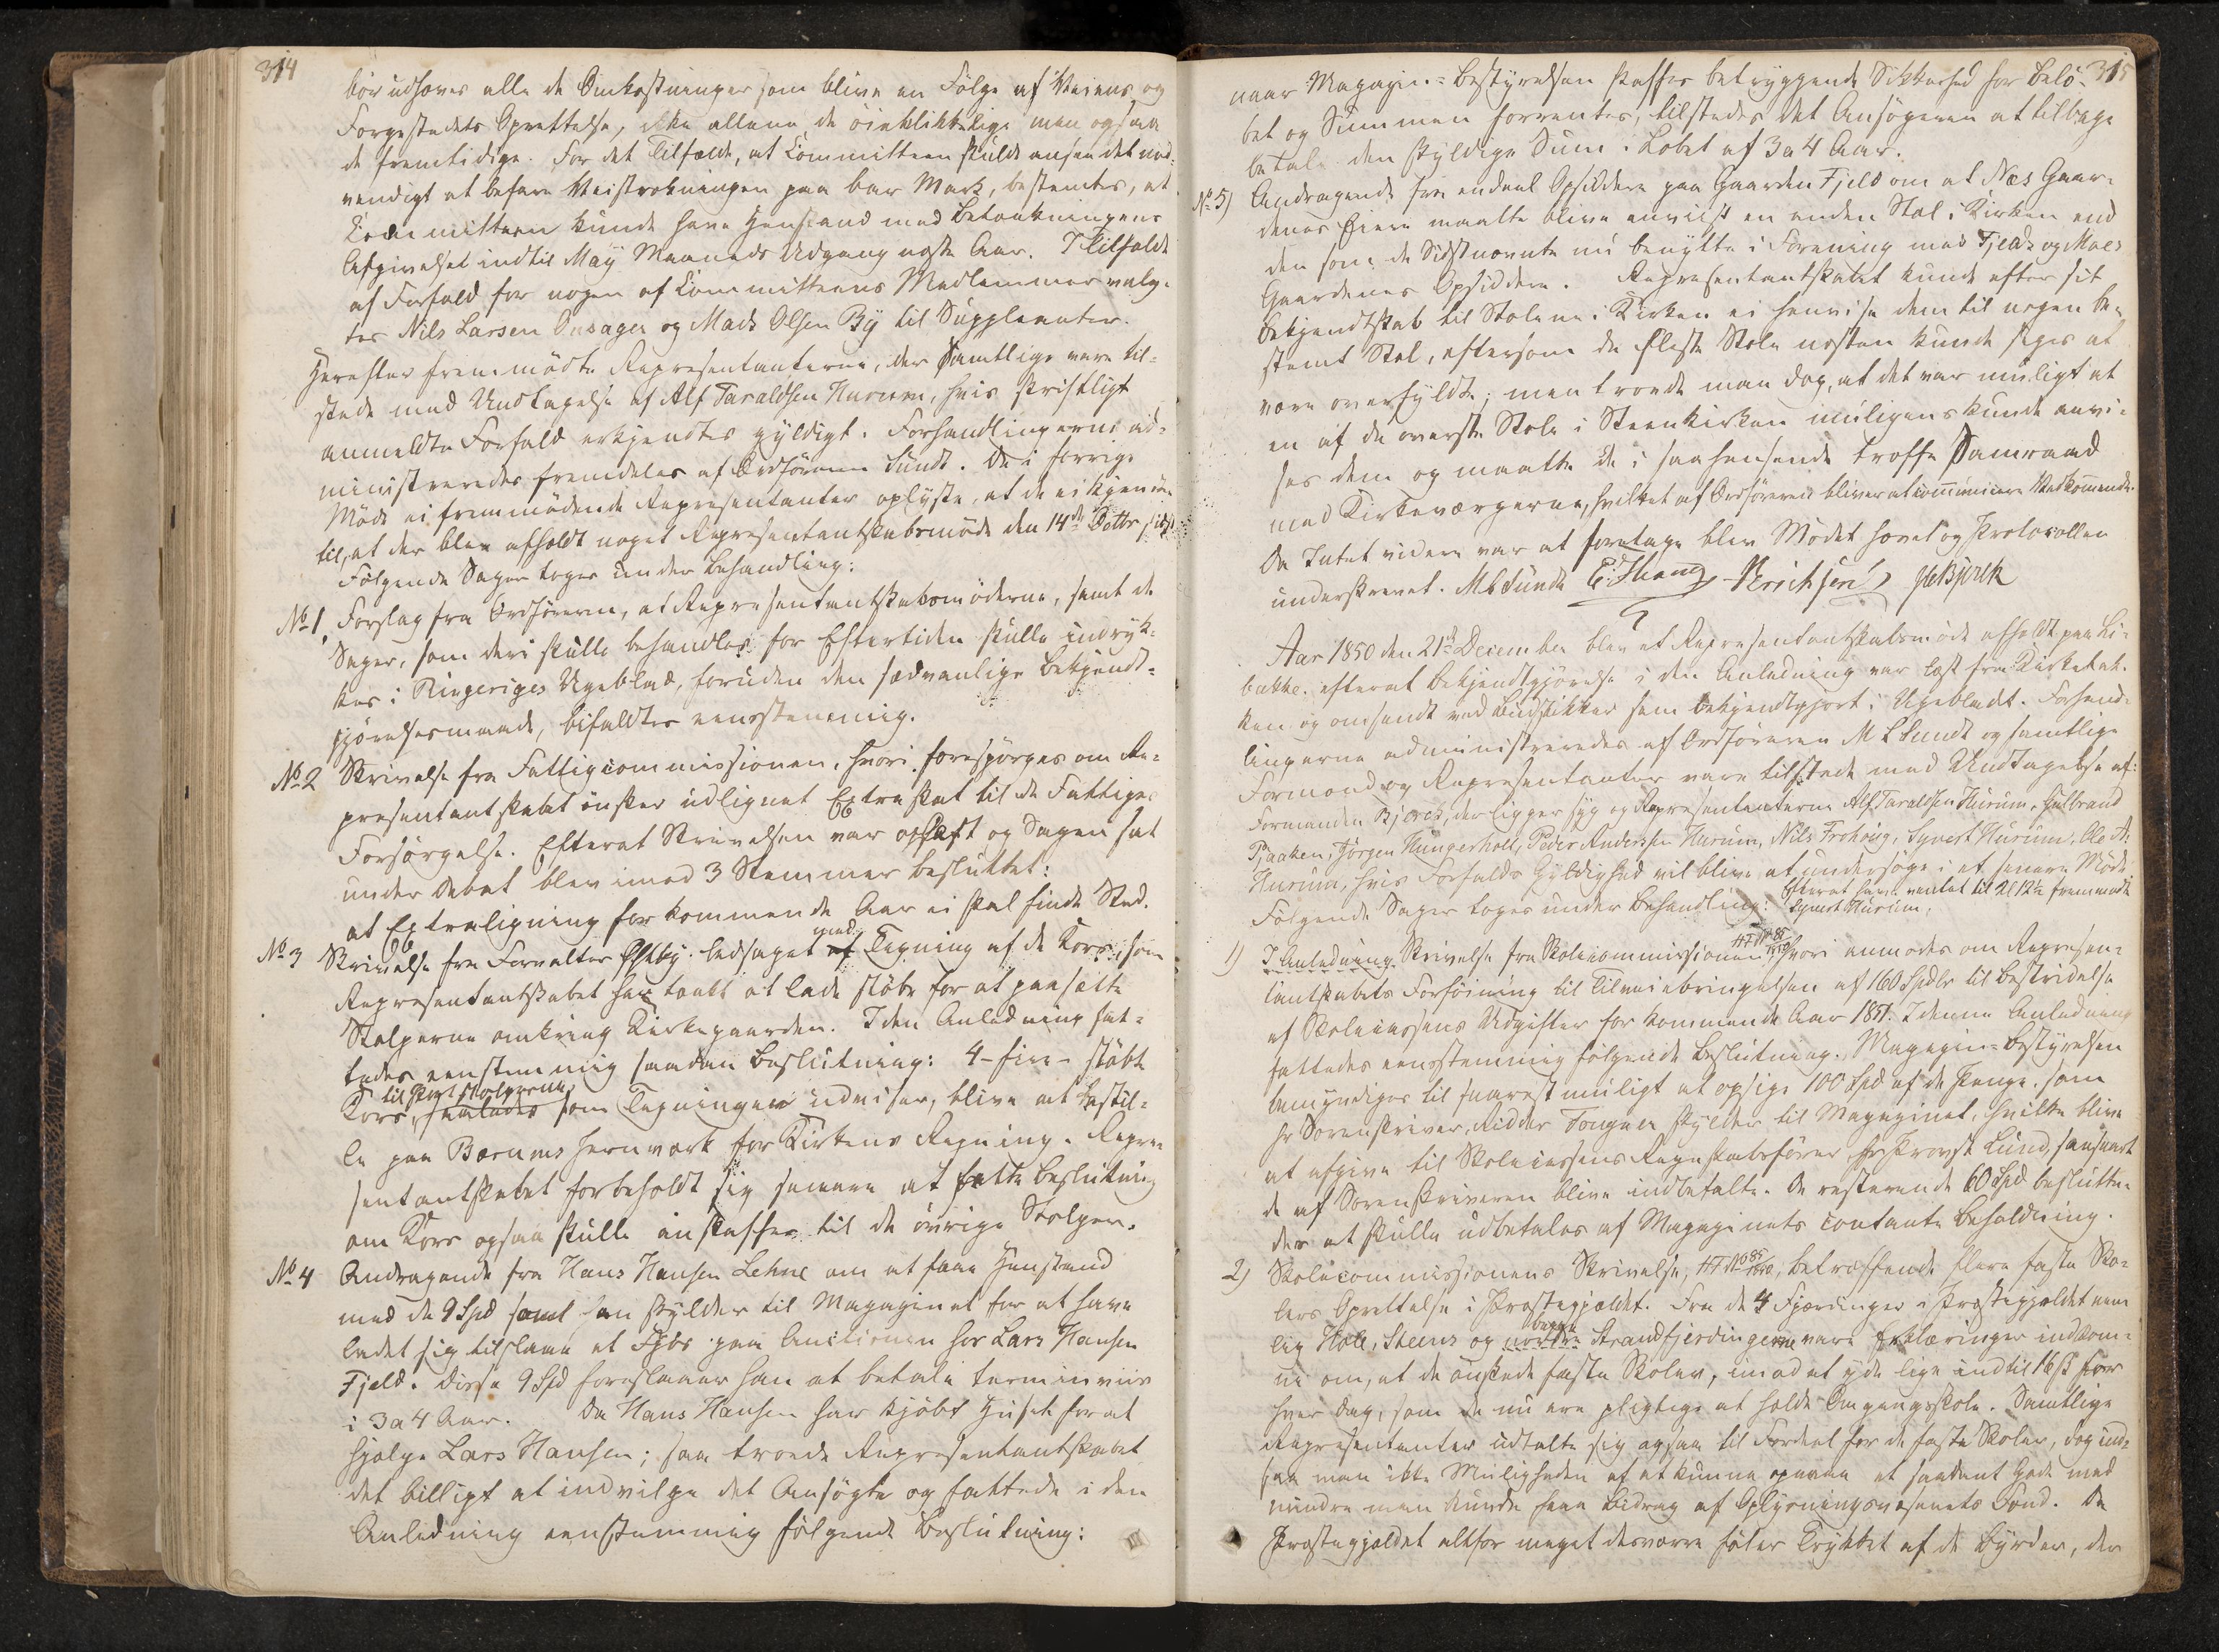 314
bör udhæves alle de Omkostninger som blive en Følge af Veiens og
Forgestedets Oprettelse, ikke allene de öieblikkelige men ogsaa
de fremtidige. For det Tilfælde, at Committeen skulde ansee det nød-
vendigt at befare Veistrækningen paa bar Mark, bestemtes, at
Committeen kunde have Henstand med Betænkningens
Afgivelse indtil May Maaneds Udgang næste Aar. I Tilfælde
af Forfald for nogen af Committeens Medlemmer valg-
tes Nils Larsen Onsager og Mads Olsen By til Suppleanter.
Herefter fremmødte Repræsentanterne, der samtlige vare til-
stede med Undtagelse af Alf Taraldsen Hurum, hvis skriftligt
anmeldte Forfald erkjendtes gyldigt. Forhandlingerne ad-
ministreredes fremdeles af Ordføreren Sundt. De i forrige
Møde ei fremmødende Repræsentanter oplyste, at de ei kjendte
til, at der blev afholdt noget Repræsentantskabsmøde den 14de Octbr sidst
Følgende Sager toges under Behandling:
No 1, Forslag fra Ordføreren, at Repræsentantskabsmøderne, samt de
Sager, som deri skulle behandles for Eftertiden skulle indryk-
kes i Ringeriges Ugeblad, foruden den sædvanlige Bekjendt-
gjørelsesmaade, bifaldtes eenstemmig.
No 2 Skrivelse fra Fattigcommissionen, hvori forespørges om Re-
præsentantskabet ønsker udlignet Extraskat til de Fattiges
Forsørgelse. Efterat Skrivelsen var oplæst og Sagen sat
under Debat blev imod 3 Stemmer besluttet:
at Extraligning for kommende Aar ei skal finde Sted.
No 3 Skrivelse fra Forvalter Østby ledsaget af med Tegning af de Kors som
Repræsentantskabet har tænkt at lade støbe for at paasætte
Stolperne omkring Kirkegaarden. I den Anledning fat-
tedes eenstemmig saadan Beslutning: 4 - fire - støbte
Kors, til Portstolperne saaledes som Tegningen udviser, blive at bestil-
le paa Bærums Jernværk for Kirkens Regning. Repræ-
sentantskabet forbeholdt sig senere at fatte Beslutning
om Kors ogsaa skulle anskaffes til de øvrige Stolper.
No 4 Andragende fra Hans Hansen Lehne om at faae Henstand
med de 9 Spd som han skylder til Magazinet for at have
ladet sig tilslaae et Fjøs paa Auctionen hos Lars Hansen
Fjeld. Disse 9 Spd foreslaaer han at betale terminviis
i 3 a 4 Aar. Da Hans Hansen har kjøbt Huset for at
hjælpe Lars Hansen; saa troede Repræsentantskabet
det billigt at indvilge det Ansøgte og fattede i den
Anledning eenstemmig følgende Beslutning:
315
naar Magazin-Bestyrelsen skaffes betryggende Sikkerhed for Belø-
bet og Summen forrentes, tilstedes det Ansøgeren at tilbage
betale den skyldige Sum i Løbet af 3 a 4 Aar.
No 5) Andragende fra endeel Opsiddere paa Gaarden Fjeld om at Næs Gaar-
denes Eiere maatte blive anviist en anden Stol i Kirken end
den som de Sidstnævnte nu benytte i Forening med Fjelds og Moes
Gaardenes Opsiddere. Repræsentantskabet kunde efter sit
Bekjendtskab til Stolene i Kirken ei henvise dem til nogen be-
stemt Stol, eftersom de fleste Stole næsten kunde siges at
være overfyldte; men troede man dog, at det var muligt at
en af de øverste Stole i Steenkirken muligens kunde anvi-
ses dem og maatte de i saahenseende træffe Samraad
med Kirkeværgerne, hvilket af Ordføreren bliver at communicere Vedkommende.
Da Intet videre var at foretage blev Mødet hævet og Protocollen
underskrevet. M L Sundt E. Thang Erichsen HBjerk
Aar 1850 den 21de December blev et Repræsentantskabsmøde afholdt paa Li-
bakke efterat Bekjendtgjørelse i den Anledning var læst fra Kirkebak-
ken og omsendt ved Budstikker som bekjendtgjort i Ugebladet. Forhand-
lingerne administreredes af Ordføreren M L Sundt og samtlige
Formænd og Repræsentanter vare tilstede med Undtagelse af:
Formanden Bjerk, der ligger syg og Repræsentanterne Alf Taraldsen Hurum, Gulbrand
Tjaaken, Jörgen Hungerholt, Peder Andersen Hurum, Nils Frohoug, Syvert Hurum, Ole A.
Hurum, hvis Forfalds Gyldighed vil blive at undersøge i et senere Møde
Følgende Sager toges under Behandling: Efterat have ventet til Kl 12½ fremmødte
Syvert Hurum.
1) I Anledning Skrivelse fra Skolecommissionen, H No 85/1850 hvori anmodes om Repræsen-
tantskabets Forføining til Tilveiebringelsen af 160 Spdlr til Bestridelse
af Skolecassens Udgifter for kommende Aar 1851. I denne Anledning
fattedes eenstemmig følgende Beslutning. Magazin-Bestyrelsen
bemyndiges til snarest muligt at opsige 100 Spd af de Penge, som
Hr Sorenskriver, Ridder Tongaer skylder til Magazinet, hvilke blive
at afgive til Skolecassens Regnskabsfører Hr Provst Lund, saasnart
de af Sorenskriveren blive indbetalte. De resterende 60 Spd beslutte-
des at skulle udbetales af Magazinets contante Beholdning.
2) Skolecommissionens Skrivelse, H No 85/1850, betræffende flere faste Sko-
lers Oprettelse i Præstegjældet. Fra de 4 Fjerdinger i Præstegjeldet nem-
lig Hole, Steens og nordre begge Strandfjerdingerne vare Erklæringer indkom-
ne om, at de ønskede faste Skoler, imod at yde lige indtil 16 ß for
hver Dag, som de nu ere pligtige at holde Omgangsskole. Samtlige
Repræsentanter udtalte sig ogsaa til Fordeel for de faste Skoler, dog ind-
saa man ikke Muligheden af at kunne opnaae et saadant Gode med
mindre man kunde faae Bidrag af Oplysningsvæsenets Fond. Da
Præstegjeldet altfor meget desværre føler Trykket af de Byrder, der